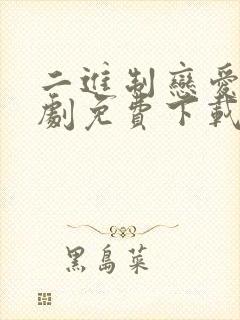 二進制戀愛
劇免費下載
黑島菜